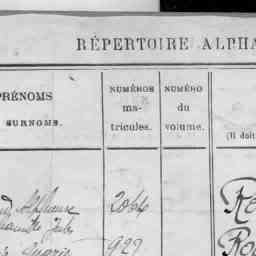 RÉPERTOIRE ALPHA
PRÉNOMS
SURNOMS.
NUMÉROS
ma-
tricules.
NUMÉRO
du
volume.
(Il doit
Alphonse
2064
Jules
927